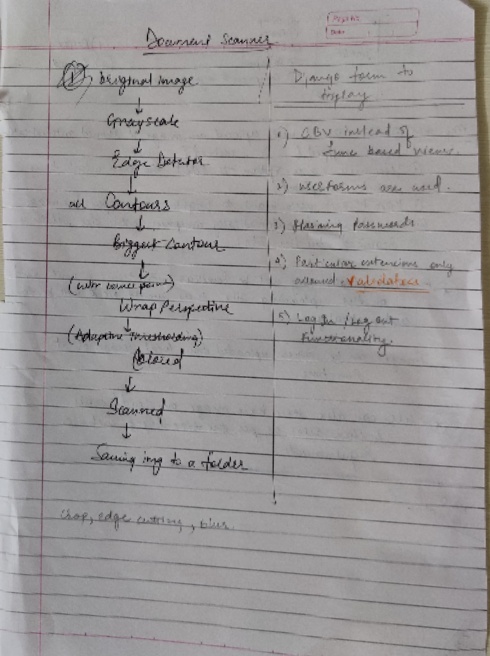 Page No.
Date
Document Scanner
① Original image
↓
Grayscale
↓
Edge Detector
↓
all Contours
↓
Biggest Contour
↓
(with corner point)
Wrap Perspective
↓
(Adaptive Thresholding)
Colored
↓
Scanned
↓
Saving img to a folder
crop, edge cutting, blur
Django form to
display
1) CBV instead of
func based views.
2) userforms are used.
3) Hashing Passwords
4) Particular extensions only
allowed. Validators
5) Log In / Log out
functionality.